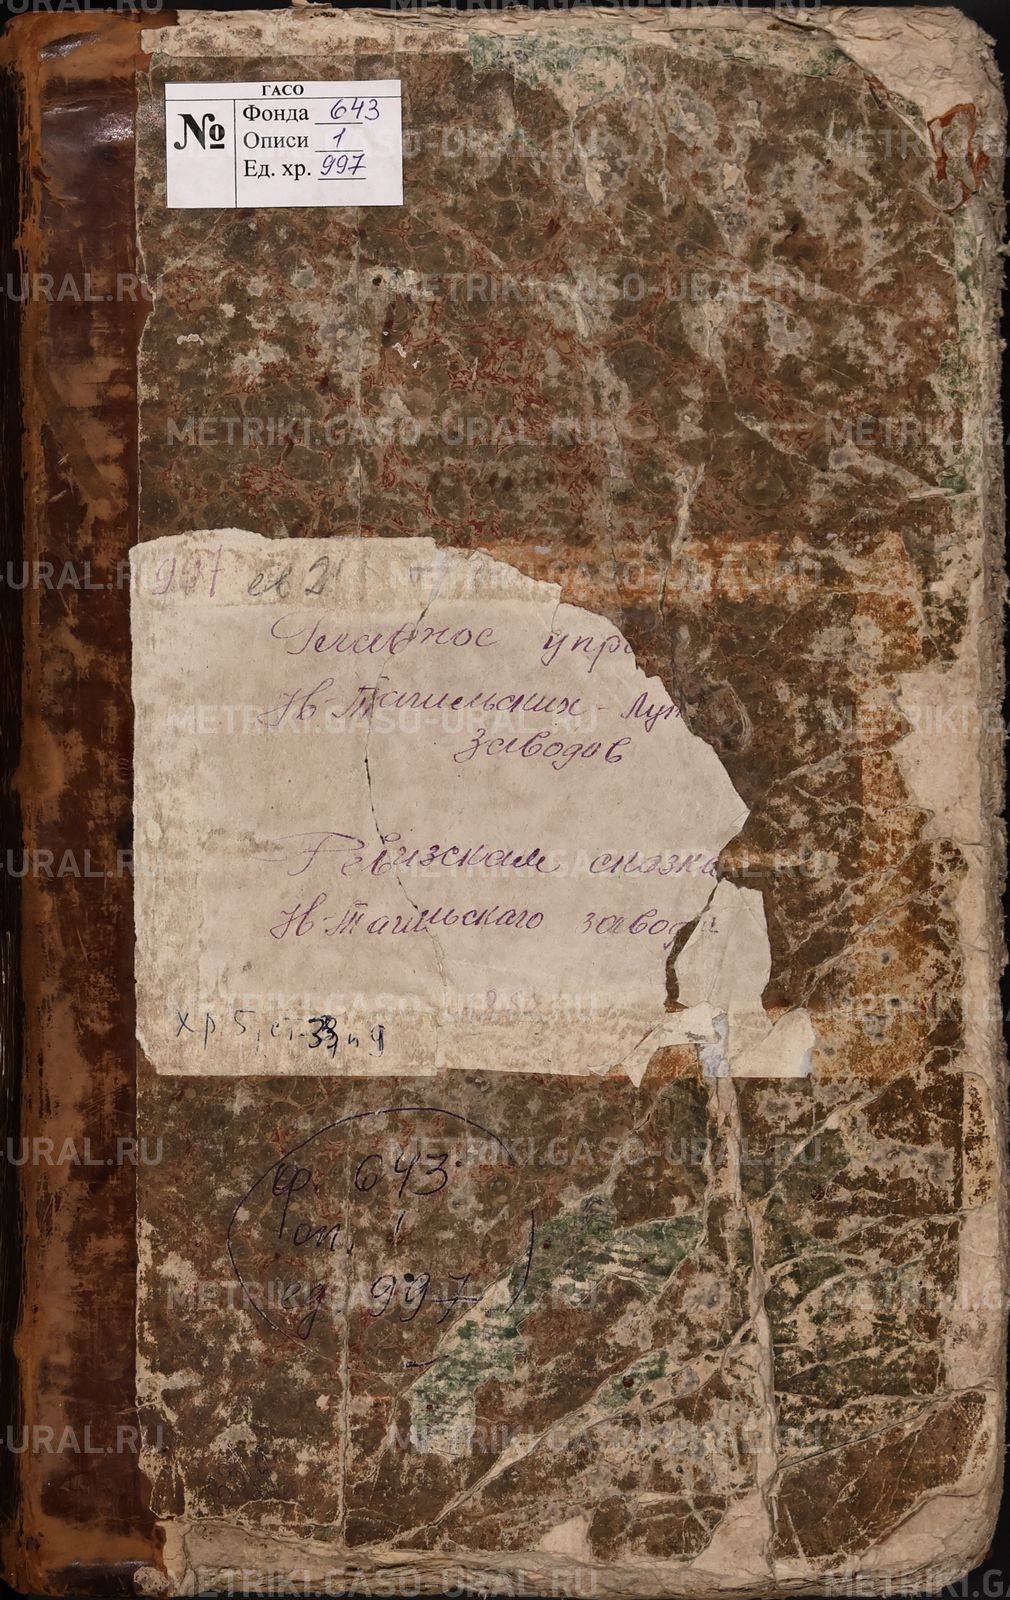 ГАСО
№
Фонда 643
Описи 1
Ед. хр. 997
997
Главное упра
Нв-Тагильских - Лун
заводов
Ревизская сказка
Нв-Тагильскаго завода
хр. 5, ст. 33, п 9
ф. 643
оп. 1
ед. 997
METRIKI.GASO-URAL.RU